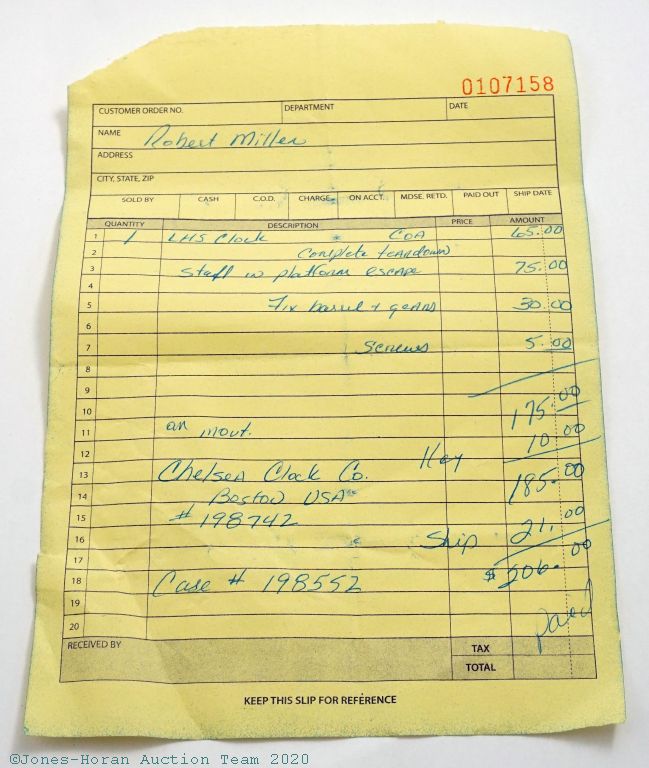 0107158
CUSTOMER ORDER NO. DEPARTMENT DATE
NAME Robert Miller
ADDRESS
CITY, STATE, ZIP
SOLD BY CASH C.O.D. CHARGE ON ACCT. MDSE. RETD. PAID OUT SHIP DATE
QUANTITY DESCRIPTION PRICE AMOUNT
1 1 LHS Clock COA 65.00
2 Complete teardown
3 Staff in platform escape 75.00
4
5 Fix barrel + gears 30.00
6
7 Screws 5.00
8
9
10 175.00
11 an mout.
12 Key 10.00
13 Chelsea Clock Co. 185.00
14 Boston USA
15 # 198742
16 Ship 21.00
17
18 Case # 198552 $206.00
19
20 paid
RECEIVED BY TAX
TOTAL
KEEP THIS SLIP FOR REFERENCE
©Jones-Horan Auction Team 2020